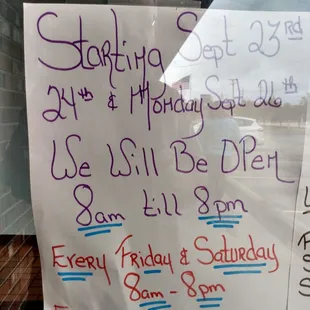 Starting Sept 23rd
24th & Monday Sept 26th
We Will Be Open
8am till 8pm
Every Friday & Saturday
8am - 8pm